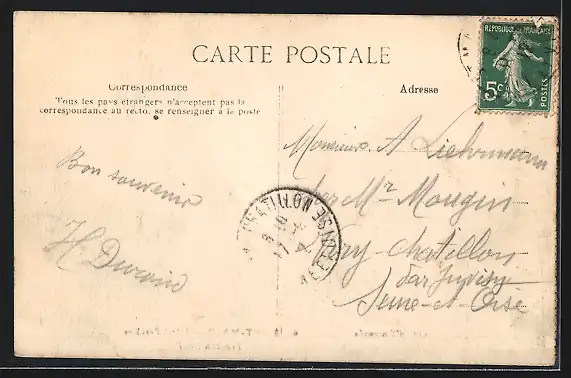 CARTE POSTALE
Correspondance
Tous les pays étrangers n'acceptent pas la
correspondance au recto, se renseigner à la poste
Adresse
RÉPUBLIQUE FRANÇAISE
5c
POSTES
Bon souvenir
H. Durand
Monsieur A
par Mr Mougin
Viry-Chatillon
par Juvisy
Seine-et-Oise
CHATILLON
SEINE ET OISE